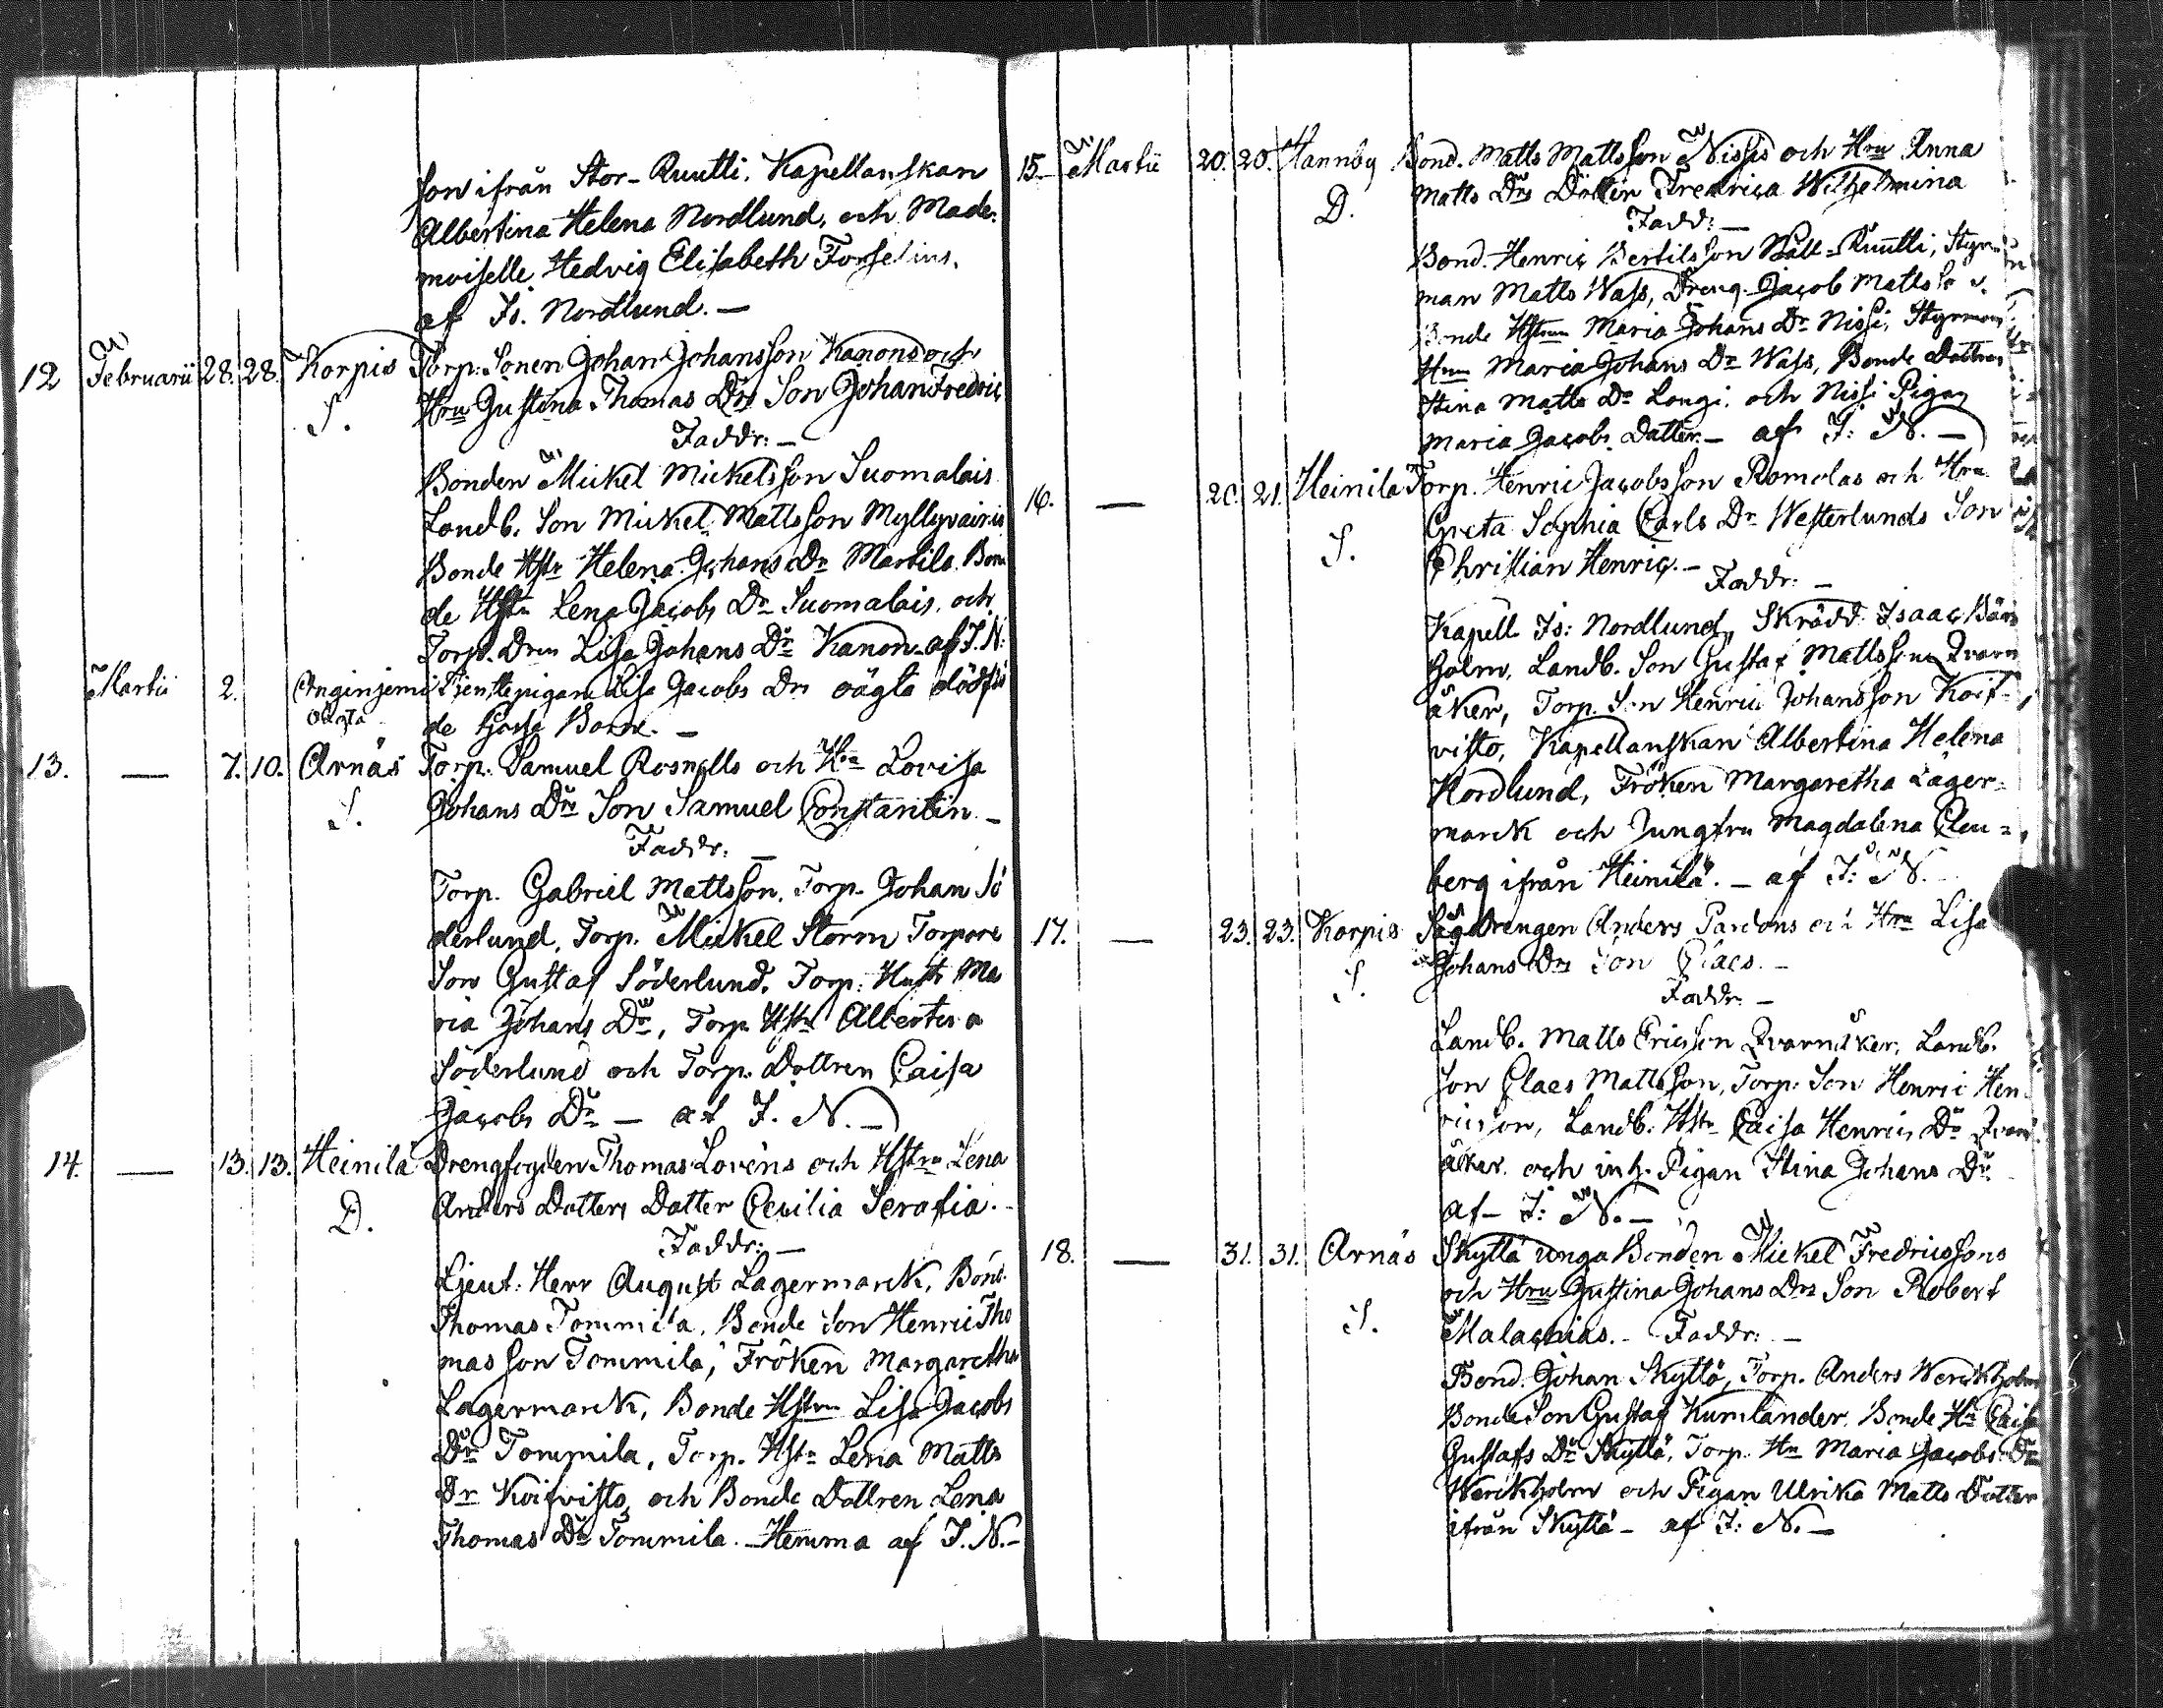 son ifrån Stor-Ruutti, Kapellanskan
Albertina Helena Nordlund, och Made-
moiselle Hedvig Elisabeth Forselius.
af Is. Nordlund. —
12 Februarii 28. 28. Korpis Torp. Sonen Johan Johansson Kanons och
S. Hru Gustina Thomas Drs Son Johan Fredric
Faddr: —
Bonden Mickel Mickelsson Suomalais
Landb. Son Mickel Mattsson Myllyvainio
Bonde Hstr Helena Johans Dr Martila. Bon
de Hstr Lena Jacobs Dr Suomalais, och
Torp. Dren Lisa Johans Dr Kanon. af I. N.
Martii 2. Anginjemi Tjenstepigan Lisa Jacobs Drs oägta dödfö
oägta de Gosse Barn. —
13. — 7. 10. Arnäs Torp. Samuel Rosnells och Hru Lovisa
S. Johans Drs Son Samuel Constantin. —
Faddr. —
Torp. Gabriel Mattsson, Torp. Johan Sö
derlund, Torp. Mickel Storm Torpare
Son Gustaf Söderlund, Torp. Hustr Ma
ria Johans Dr, Torp Hstr Albertina
Söderlund och Torp. Dottren Caisa
Jacobs Dr — af I. N. —
14. — 13. 13. Heinilä Drengfogden Thomas Lovéns och Hstru Lena
D. Anders Dotters Datter Cecilia Serafia. —
Faddr: —
Lieut: Herr August Lagermarck, Bond.
Thomas Tommila, Bonde Son Henric Tho
mas son Tommila, Fröken Margaretha
Lagermarck, Bonde Hstrun Lisa Jacobs
Dr Tommila, Torp. Hstr Lena Matts
Dr Koifvisto, och Bonde Dottren Lena
Thomas Dr Tommila. — Hemma af I. N. —
15. Martii 20. 20. Hannby Bond. Matts Mattsson Nissis och Hru Anna
D. Matts Drs Dotter Fredrica Wilhelmina
Fadd: —
Bond. Henric Bertilsson Ruutti, Styr
man Matts Wass, Dreng Jacob Mattsso n.
Bonde Hstrun Maria Johans Dr Nissi, Styrmans
Hrun Maria Johans Dr Wass, Bonde Dottren
Stina Matts Dr Longi, och Nissi Pigan
Maria Jacobs Datter. — af I: N. —
16. — 20. 21. Heinilä Torp. Henric Jacobsson Romolas och Hru
S. Greta Sophia Carls Dr Westerlunds Son
Christian Henric. —
Faddr: —
Kapell. Is: Nordlund, Skrädd. Isaac
holm, Landb. Son Gustaf Mattsson Qvarn
åker, Torp. Son Henric Johansson Koif-
visto, Kapellanskan Albertina Helena
Nordlund, Fröken Margaretha Lager-
marck och Jungfru Magdalena Cleu-
berg ifrån Heinilä. — af I: N. —
17. — 23. 23. Korpis Såg Drengen Anders Pardons och Hru Lisa
S. Johans Drs Son Claes. —
Faddr: —
Landb. Matts Ericsson Qvarnåker, Landb.
son Claes Mattsson, Torp. Son Henric Hen
ricsson, Landb. Hstr Caisa Henrics Dr Qvarn
åker och inh. Pigan Stina Johans Dr
af I: N. —
18. — 31. 31. Arnäs Skyttä unga Bonden Mickel Fredricssons
S. och Hru Gustina Johans Drs Son Robert
Malachias. — Faddr: —
Bond. Johan Skyttä, Torp. Anders Werckholm
Bonde Son Gustaf Kumlander. Bonde Hr Caisa
Gustafs Dr Skyttä, Torp. Hr Maria Jacobs Dr
Werckholm och Pigan Ulrika Matts Dotter
ifrån Skyttä — af I: N. —